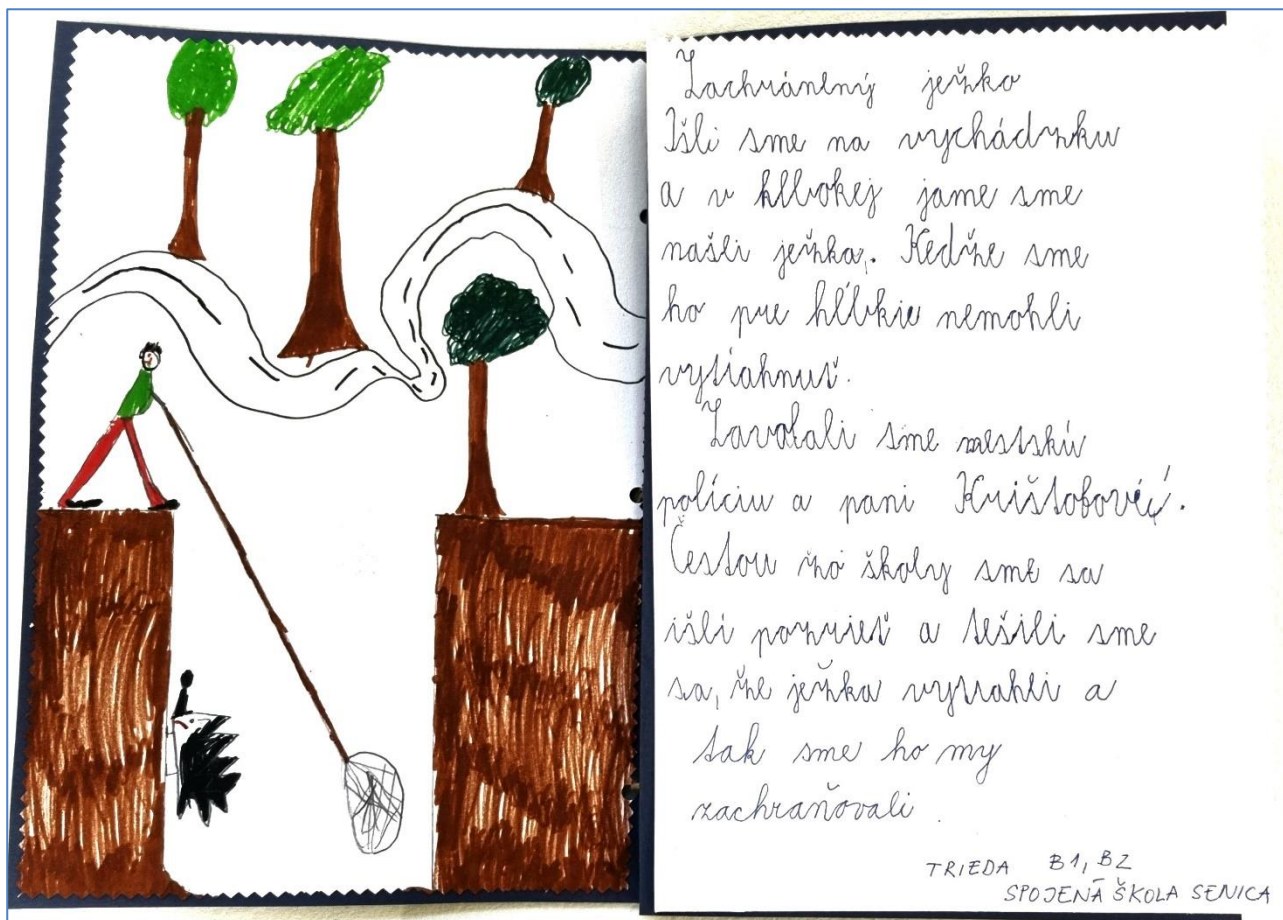 Zachránený ježko
Išli sme na vychádzku
a v hlbokej jame sme
našli ježka. Kedže sme
ho pre hĺbkie nemohli
vytiahnuť.
Zavolali sme mestskú
políciu a pani
Cestou zo školy sme sa
išli pozrieť a tešili sme
sa, že ježka vytiahli a
tak sme ho my
zachraňovali.
TRIEDA B1, B2
SPOJENÁ ŠKOLA SENICA